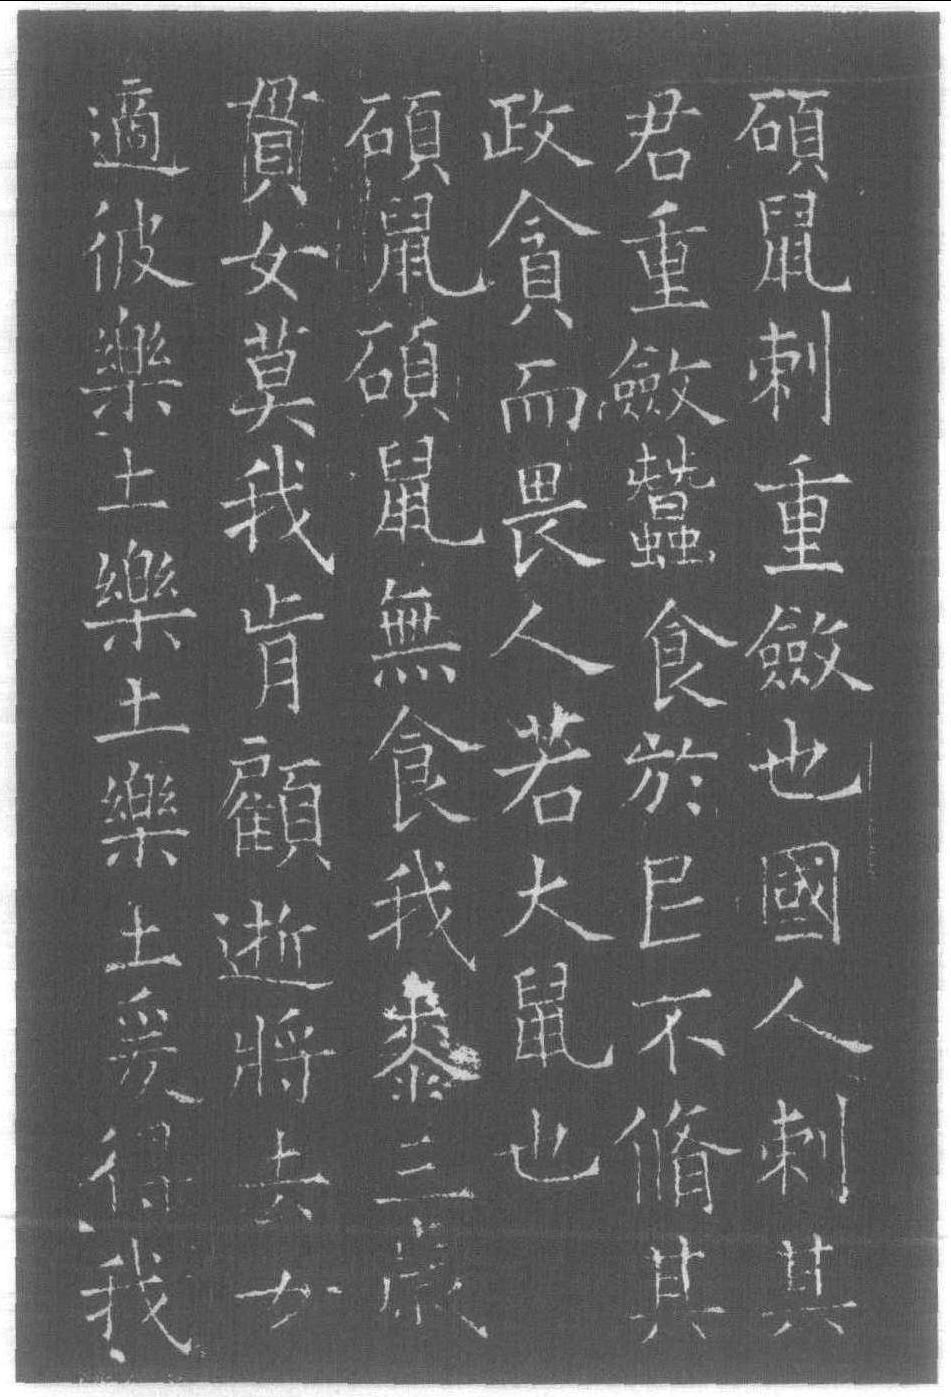 碩鼠刺重斂也國人刺其
君重斂蠶食於巳不脩其
政貪而畏人若大鼠也
碩鼠碩鼠無食我黍三歲
貫女莫我肯顧逝將去女
適彼樂土樂土樂土爰得我